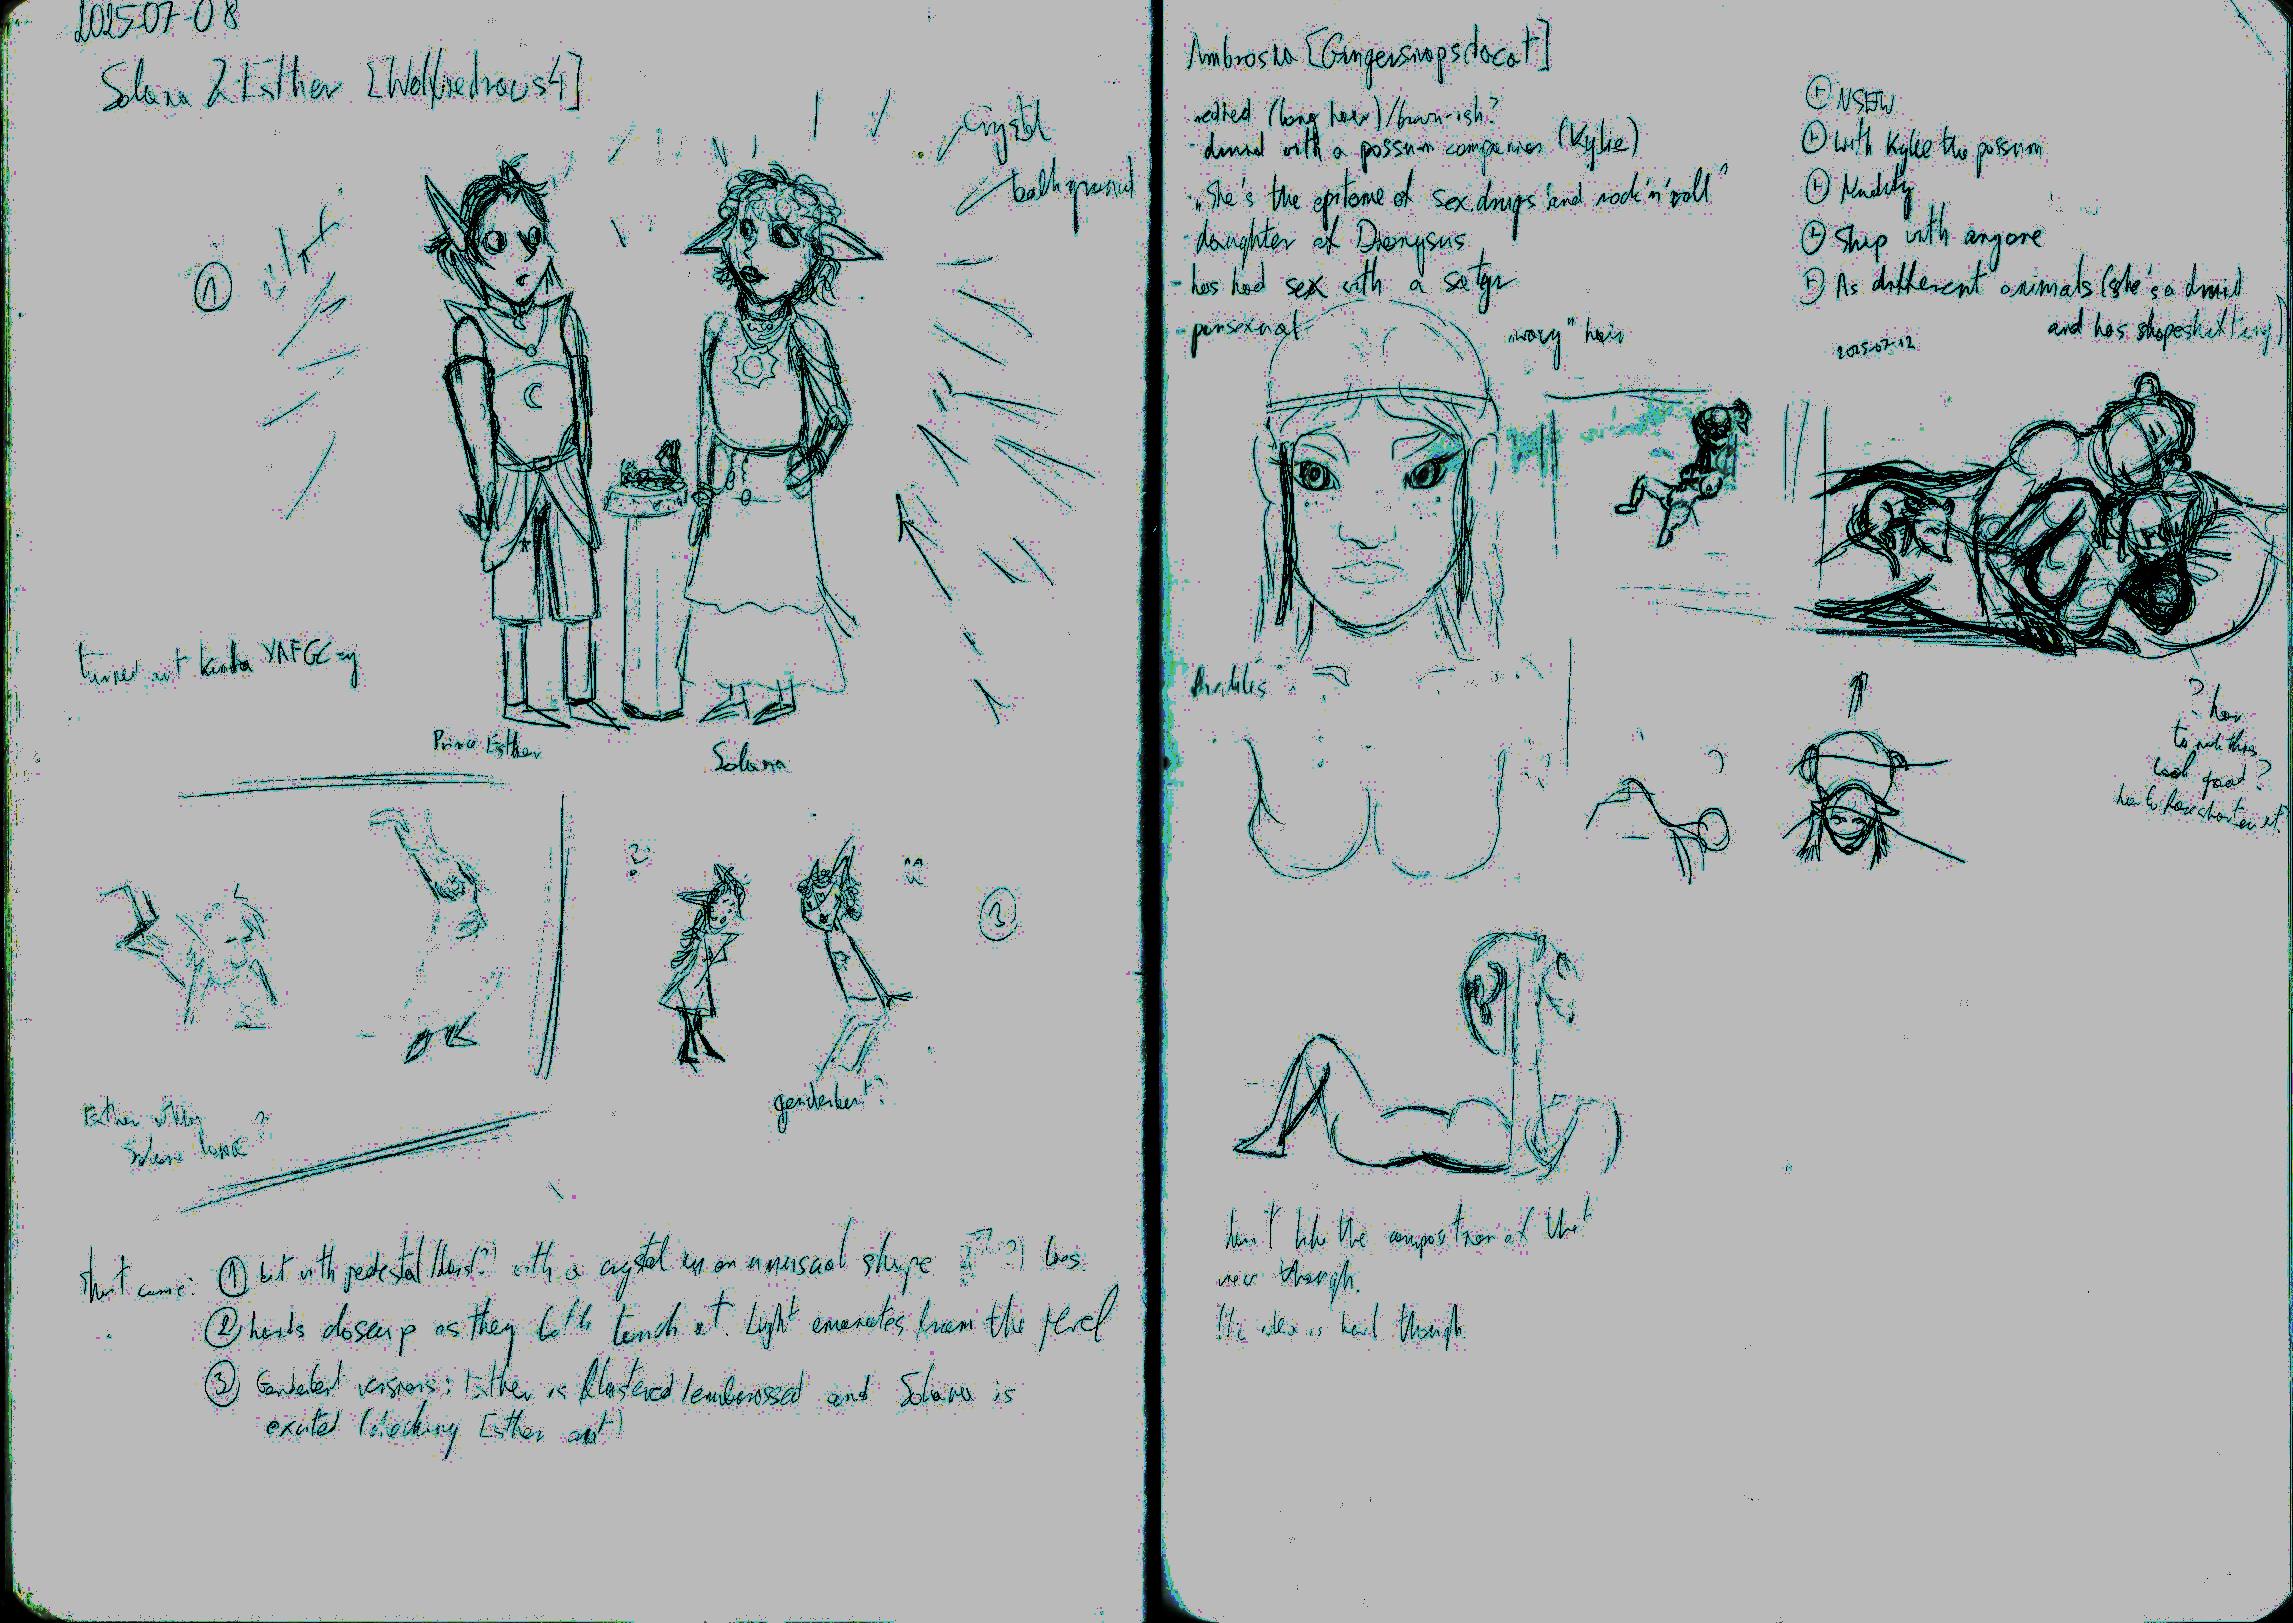 2025-07-08
Solana & Esther
①
crystal
background
turned out kinda YAFGC-y
Prince Esther
Solana
?
!!
③
genderbent?
Esther
Solana
?
① but with pedestal with a crystal in an unusual shape
② hands closeup as they both touch it. Light emanates from the
③ Genderbent versions: Esther is flustered/embarrassed and Solana is
excited (checking Esther out)
Ambrosia [Gingersnapsdacat]
redhed (long hair)/brown-ish?
druid with a possum companion (Kylie)
"She's the epitome of sex, drugs and rock'n'roll"
daughter of Dionysus
- has had sex with a satyr
- pansexual
"wavy" hair
⊕ NSFW
⊕ with Kylie the possum
⊕ Nudity
⊕ Ship with anyone
⊕ As different animals (she's a druid
and has shapeshifting)
2025-07-12
? how
to make this
look good?
how to foreshorten it?
don't like the composition of that
view though.
the idea is though